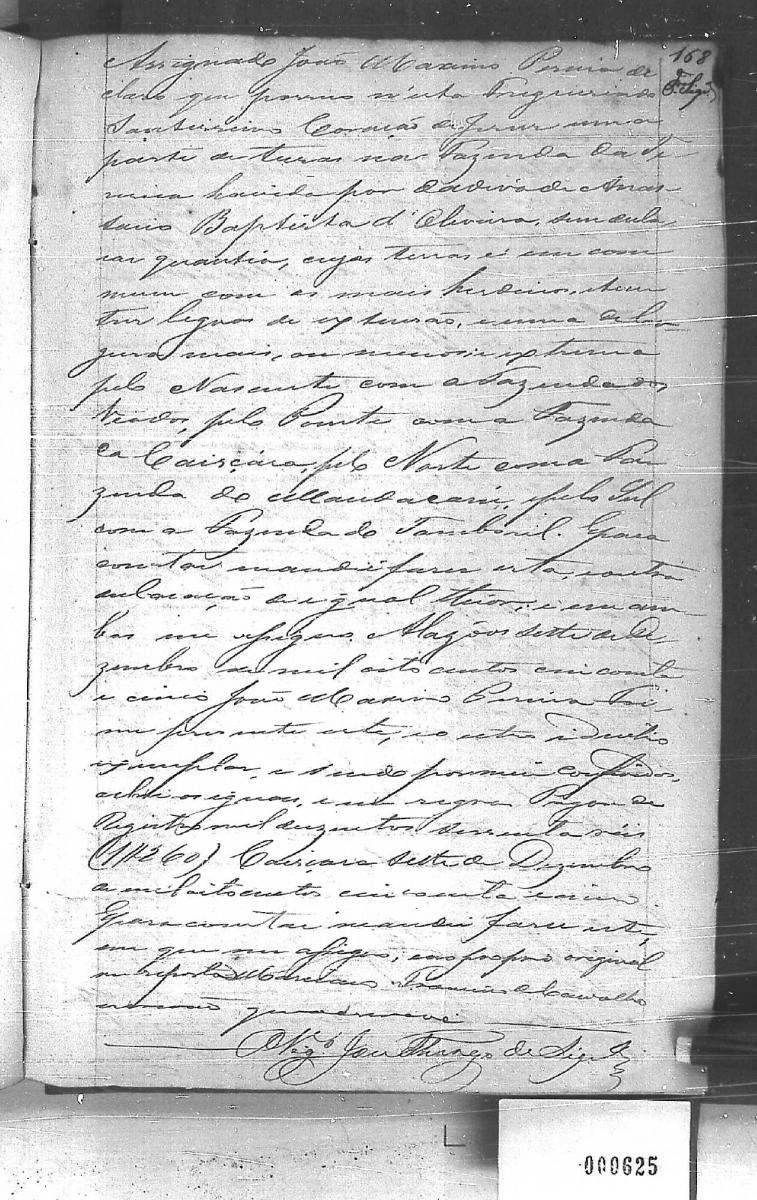 168
Assignado João Maximo Pereira de
claro que possuo n'esta Freguesia do
Santissimo Coração de Jesus uma
parte de terras na Fazenda da Ti
ririca havida por dadiva de Anas
tacio Baptista d'Oliveira, sem decla
rar quantia, cujas terras é em com
mum com os mais herdeiros, e tem
tres legoas de extensão, e uma de lar
gura mais, ou menos: e extrema
pelo Nascente com a Fazenda dos
Veados, pelo Poente com a Fazenda
da Caiçára, pelo Norte com a Fa
zenda do Mandacarú, e pelo Sul
com a Fazenda do Tamboril. E para
constar mandei fazer esta, e outra
declaração de igual theor, e em am
bas me assigno. Alagôas sette de De
zembro de mil oito centos cincoenta
e cinco João Maximo Pereira Foi
me presente este, e o outro
exemplar, e sendo por mim conferidos,
achei os iguaes, e
Registro mil duzentos sessenta réis
(1$260) Caiçara sette de Dezembro
de mil oito centos cincoenta e cinco
E para constar mandei fazer este,
em que me assigno, e ao proprio original
me reporto Francisco Carvalho
escrevi
O Vigº José Thiago de Siqrª
000625